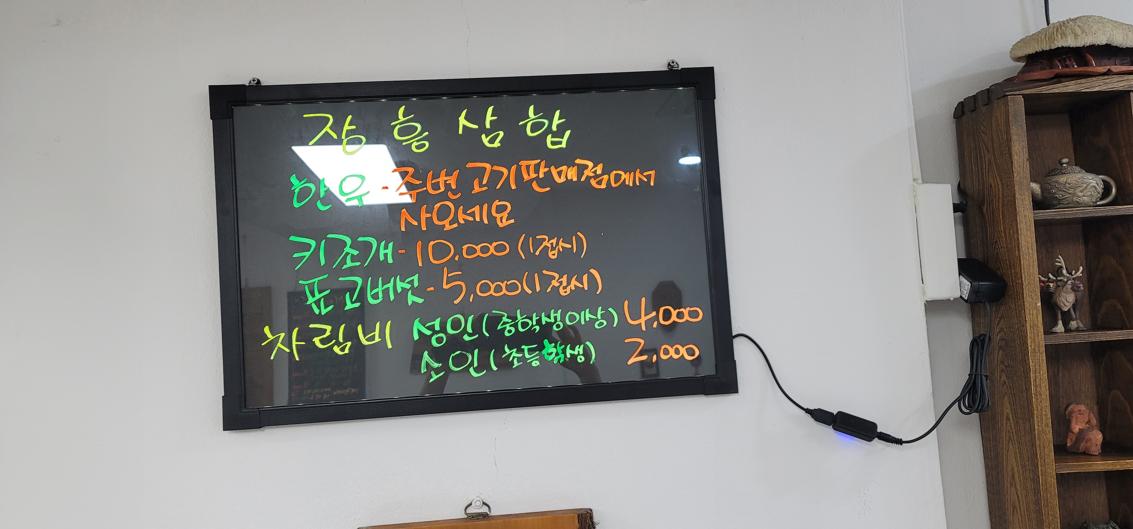 장흥삼합
한우-주변고기판매점에서
사오세요
키조개-10.000(1접시)
표고버섯-5,000(1접시)
차림비 성인(중학생이상) 4,000
소인(초등학생) 2,000